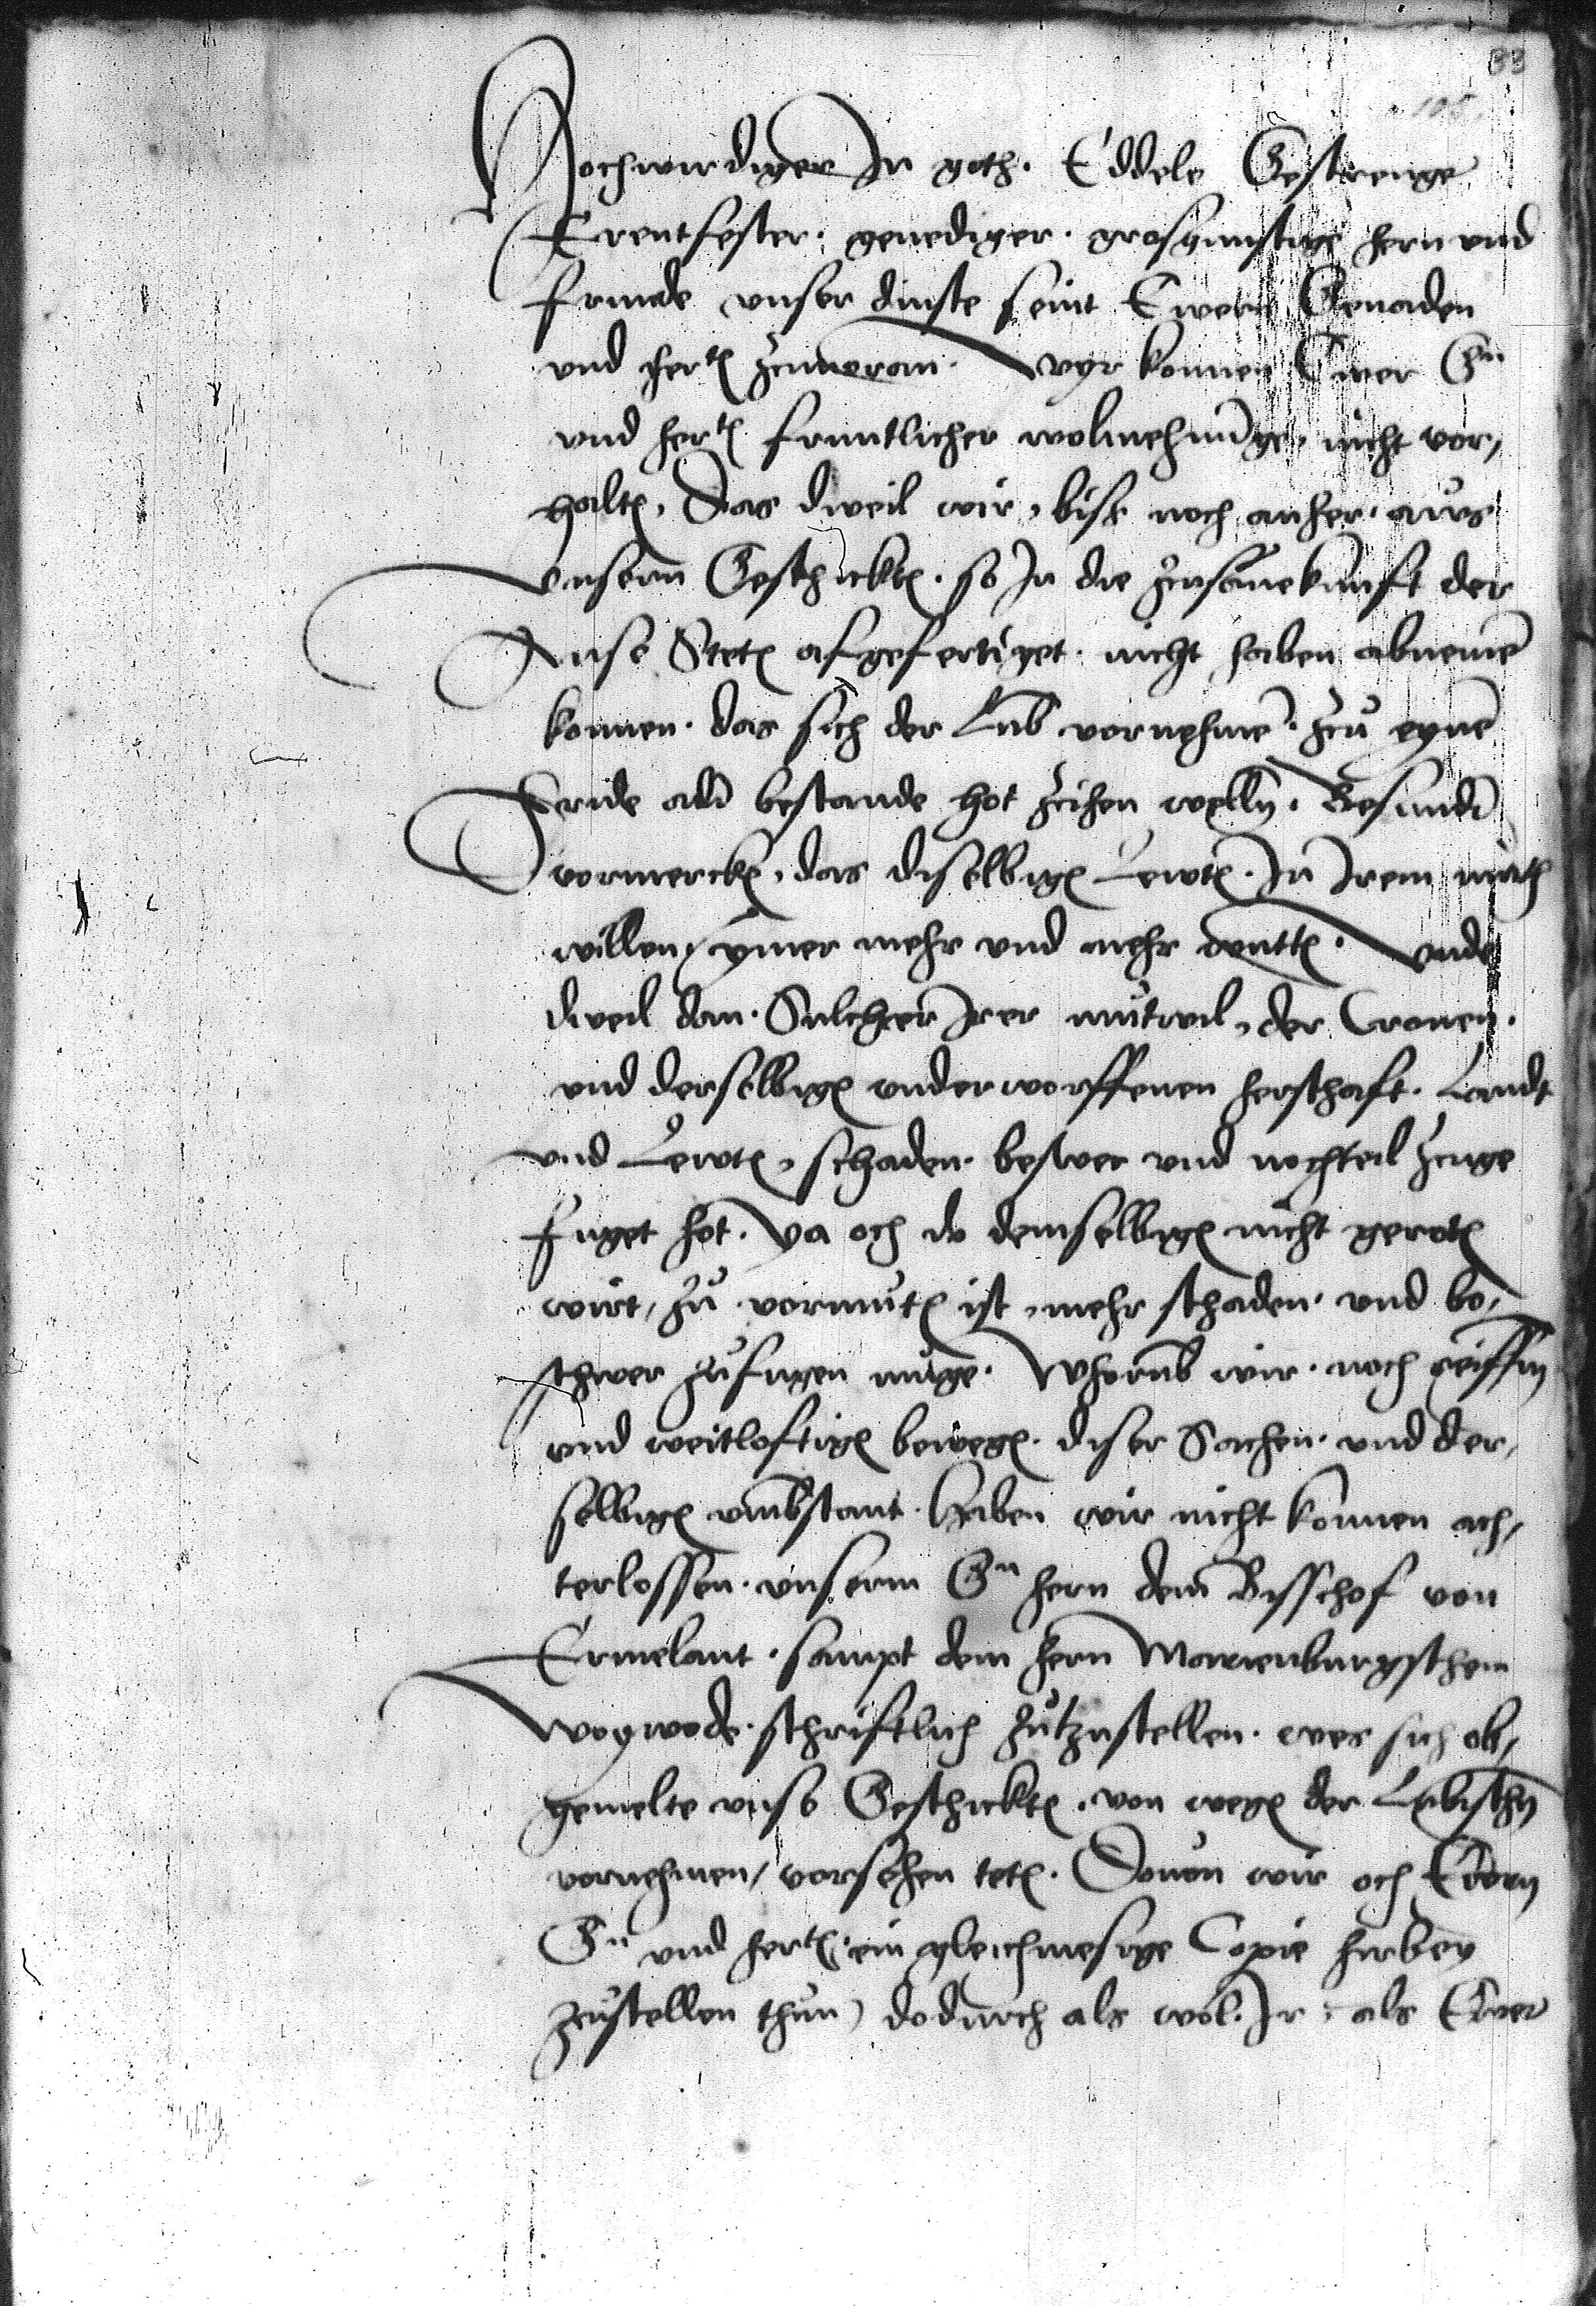 33
105
Hochwirdiger In goth. Eddele Gestrenge
Erentfester. genediger. grosgunstige hern und
frunde unser dinste seint Ewern Genaden
und hert[en] zcuuoran. Wyr konnen Ewer G[e]n
und hert[en] fruntlicher wolmehnu[n]ge. nicht vor,
halt[en], Das dweil wir, biss noch anher. aws
Unsern Geschickt[en]. so In die zcusa[m]mekunft der
Anse Stet[en] afgefertiget. nicht haben abneme[n]
konnen. das sich der Lub vornehme[n]. zcu eyne[m]
Fride ad[er] bestande hot zcihen wellen. Besund[er]
vormerck[en], das diselbig[en] Lewt[en]. In Irem muth
willen ymer mehr und mehr
Unde
dweil dan. Sulcher Irer mutwil, der Cronen.
und derselbig[en] underworffenen herschaft. Landt
und Lewt[en], schaden. beswer und nochteil zcuge
fuget hot. Va och do demselbig[en] nicht gerot[en]
wirt, zu vormut[en] ist, mehr schaden. und be,
schwer zufugen muge. Wherub wir. noch reiffen
und weitloftig[en] beweg[en]. diser Sachen. und der,
selbig[en] umbstant. Haben wir nicht konnen ach,
terlossen. unserm G[e]n hern dem Bisschof von
Ermelant. sampt dem hern Marienburgschem
Woywode. schriftlich zutzustellen. wes sich ob,
gemelte unse Geschickt[en]. von weg[en] der Lubischen
vornehmen, vorsehen tet[en]. Douon wir och Ewern
G[e]n und hert[en]. ein gleichmesige Copie hirbey
zcustellen thun, dodurch als wol. Ir. als Ewer